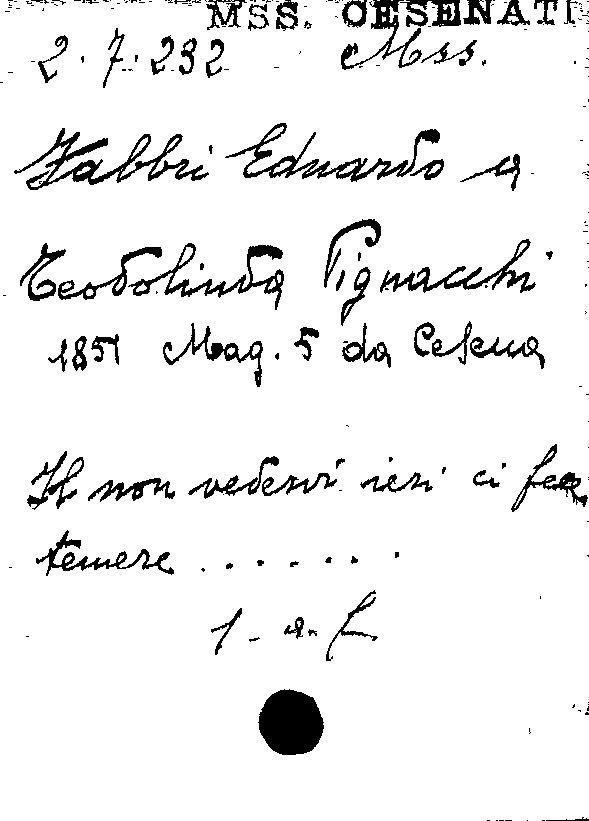 MSS. CESENATI
2.7.232 Mss.
Fabbri Eduardo a
Teodolinda Pignacchi
1851 Mag. 5 da Cesena
Il non vedervi ieri ci fea
temere .......
1 - a. f.